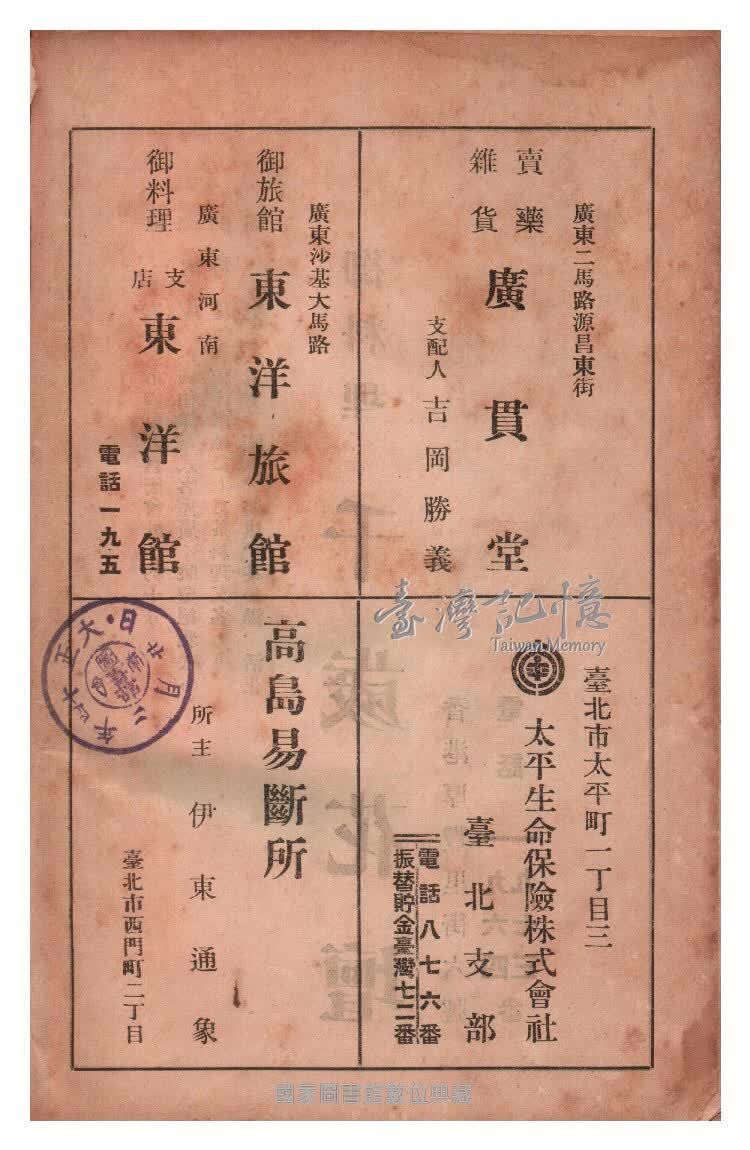 廣東二馬路源昌東街
賣藥
雜貨
廣貫堂
支配人 吉岡勝義
廣東沙基大馬路
御旅館 東洋旅館
廣東河南
御料理 支店 東洋館
電話一九五
臺北市太平町一丁目三
太平生命保險株式會社
臺北支部
電話八七六番
振替貯金臺灣七二番
高島易斷所
所主 伊東通象
臺北市西門町二丁目
臺灣記憶
Taiwan Memory
國家圖書館數位典藏